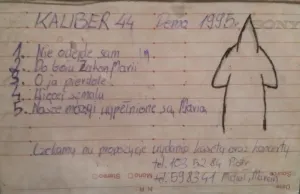 KALIBER 44 Demo 1995r
1. Nie odejdę sam
2. Do boju Zakon Marii
3. O ja pierdolę
4. Więcej szmalu
5. Nasze mózgi wypełnione są Marią
Czekamy na propozycje wydania kasety oraz koncerty
tel. 103 52 84 Piotr
tel. 598341 Michał Marcin
SONY